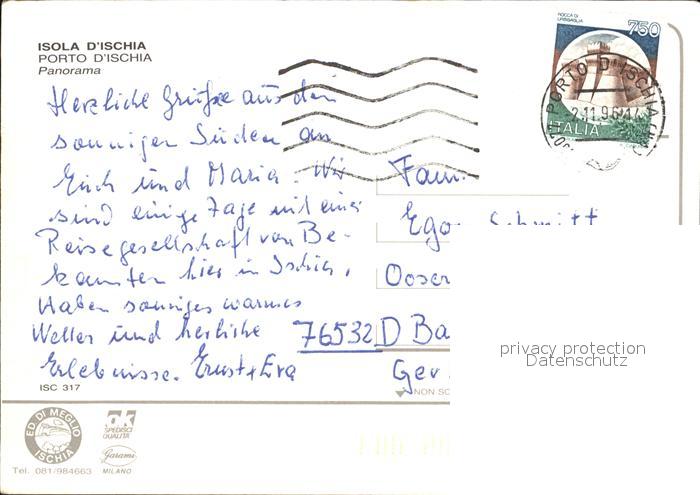 ISOLA D'ISCHIA
PORTO D'ISCHIA
Panorama
Herzliche Grüße aus dem
sonnigen Süden an
Euch und Maria. Wir
sind einige Tage mit einer
Reisegesellschaft von Be-
kannten hier in Ischia,
Haben sonniges warmes
Wetter und herrliche
Erlebnisse. Ernst + Eva
ISC 317
ED. DI MEGLIO
ISCHIA
Tel. 081/984663
ok
SPEDISCI
QUALITÀ
Garami
MILANO
ROCCA DI
URBISAGLIA
750
ITALIA
PORTO D'ISCHIA
2.11.96
Fam.
Egon Schmitt
Ooser
76532 D Ba
Ger
NON SC
privacy protection
Datenschutz